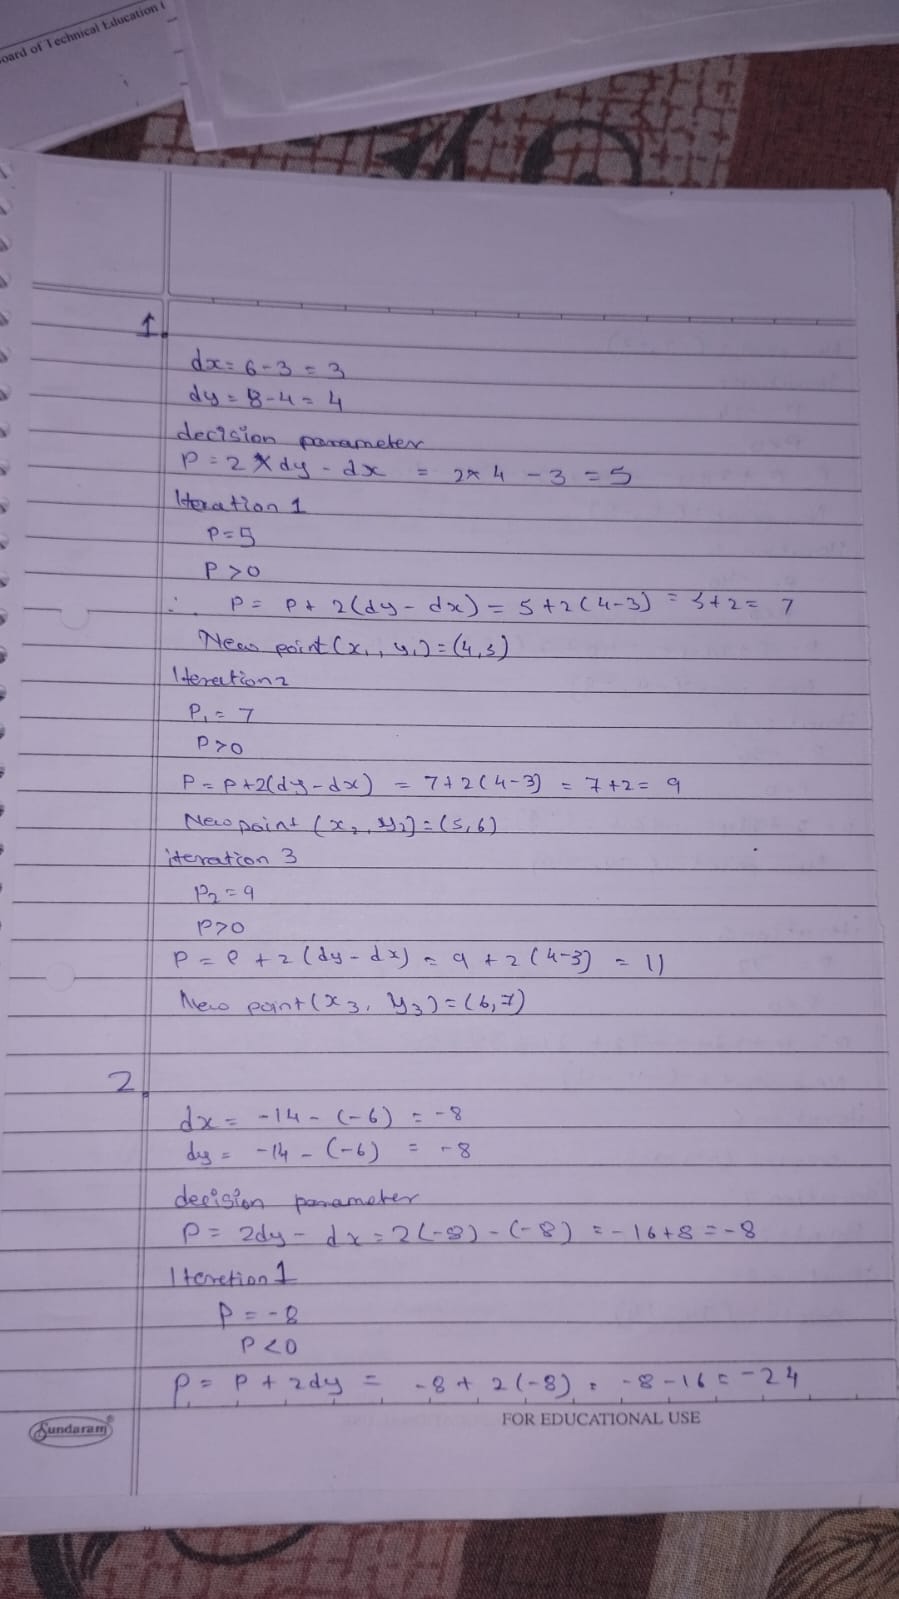 oard of Technical Education
1.
dx = 6-3 = 3
dy = 8-4 = 4
decision parameter
P = 2 * dy - dx = 2* 4 - 3 = 5
Iteration 1
P=5
P>0
∴ P = P+ 2(dy - dx) = 5+2(4-3) = 5+2 = 7
New point (x₁, y₁) = (4,5)
Iteration 2
P₁ = 7
P>0
P = P+2(dy-dx) = 7+2(4-3) = 7+2= 9
New point (x₂, y₂) = (5,6)
iteration 3
P₂ = 9
P>0
P = P + 2(dy-dx) = 9 + 2(4-3) = 11
New point (x3, y3) = (6,7)
2.
dx = -14 - (-6) = -8
dy = -14 - (-6) = -8
decision parameter
P = 2dy - dx = 2(-8) - (-8) = -16+8 = -8
Iteretion 1
P = -8
P<0
P = P + 2dy = -8 + 2(-8) = -8-16 = -24
Sundaram®
FOR EDUCATIONAL USE